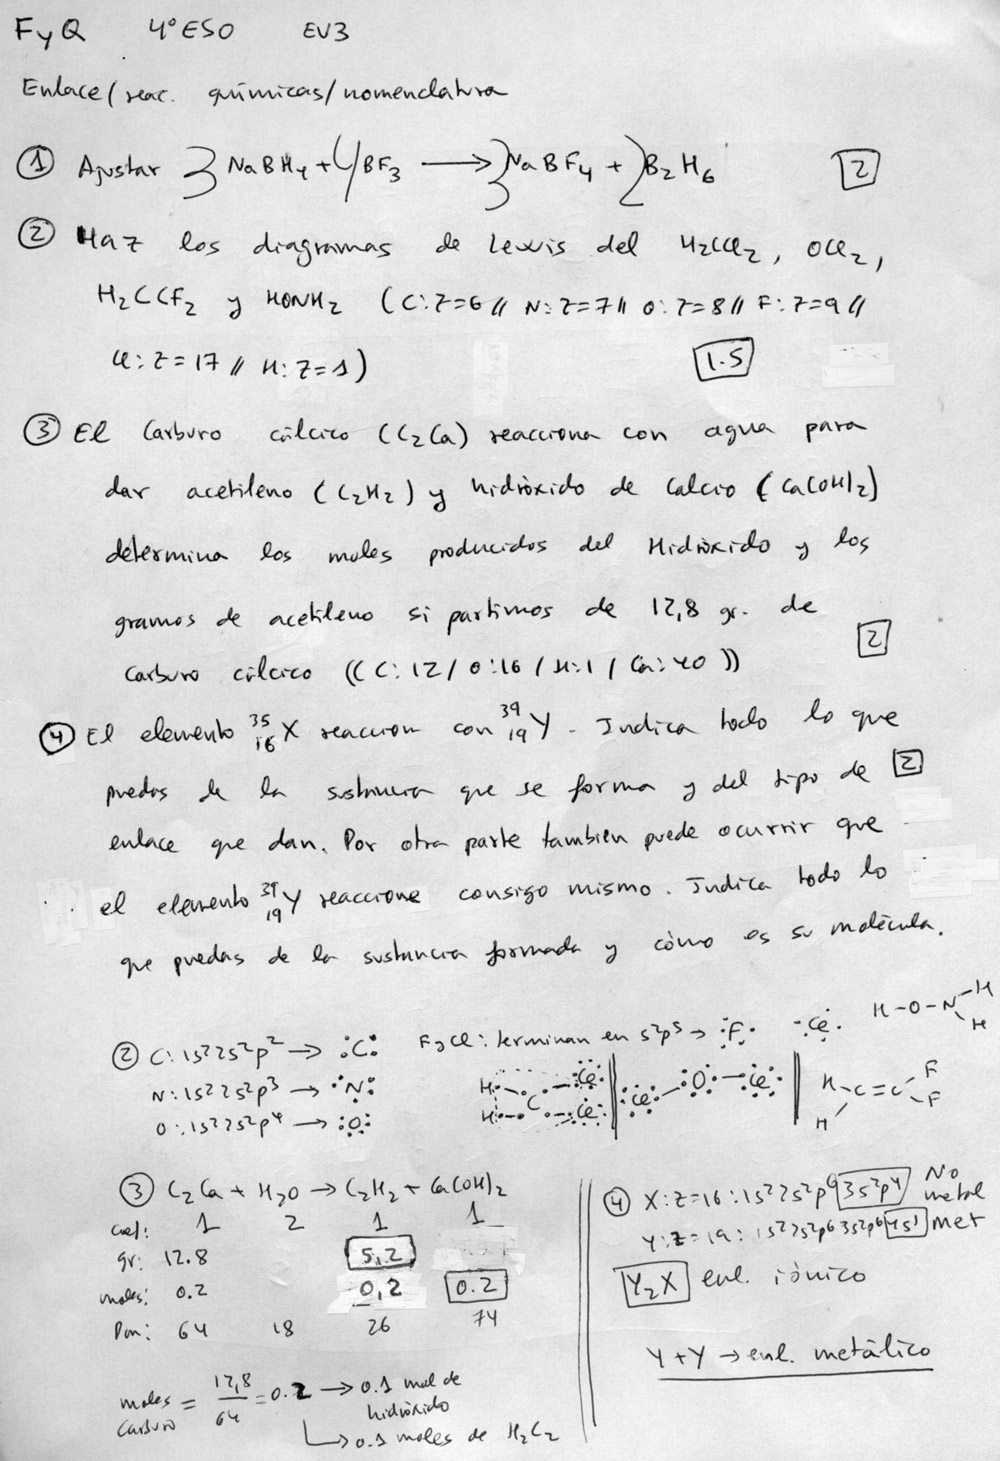 FyQ 4º ESO EV3
Enlace/reac. químicas/nomenclatura
① Ajustar 3 NaBH4 + 4 BF3 → 3 NaBF4 + 2 B2H6 [2]
② Haz los diagramas de Lewis del H2CCl2, OCl2,
H2CCF2 y HONH2 (C:Z=6 // N:Z=7 // O:Z=8 // F:Z=9 //
Cl:Z=17 // H:Z=1) [1.5]
③ El Carburo cálcico (C2Ca) reacciona con agua para
dar acetileno (C2H2) y hidróxido de Calcio (Ca(OH)2)
determina los moles producidos del Hidróxido y los
gramos de acetileno si partimos de 12,8 gr. de
Carburo cálcico ((C:12/O:16/H:1/Ca:40)) [2]
④ El elemento 35 16 X reaccion con 39 19 Y. Indica todo lo que
puedas de la sustancia que se forma y del tipo de [2]
enlace que dan. Por otra parte tambien puede ocurrir que
el elemento 39 19 Y reaccione consigo mismo. Indica todo lo
que puedas de la sustancia formada y cómo es su molécula.
② C: 1s²2s²p² → :C:
N: 1s²2s²p³ → ·N:
O: 1s²2s²p⁴ → :O:
F y Cl: terminan en s²p⁵ → :F· ·Cl:
H-O-N H H
H H C Cl Cl
Cl - O - Cl
H H C=C F F
③ C2Ca + H2O → C2H2 + Ca(OH)2
coef: 1 2 1 1
gr: 12.8 5,2
moles: 0.2 0,2 0.2
Pm: 64 18 26 74
moles Carburo = 12,8/64 = 0.2 → 0.1 mol de hidróxido
→ 0.1 moles de H2C2
④ X: Z=16: 1s²2s²p⁶3s²p⁴ No metal
Y: Z=19: 1s²2s²p⁶3s²p⁶4s¹ met
Y2X enl. iónico
Y+Y → enl. metálico